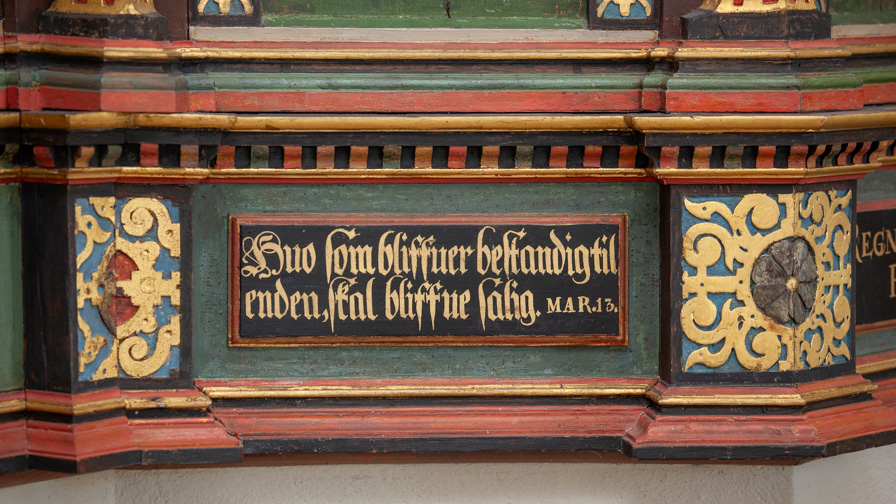 Huo som bliffuer bestandig til
enden, skal bliffue salig. MAR.13.
REGN